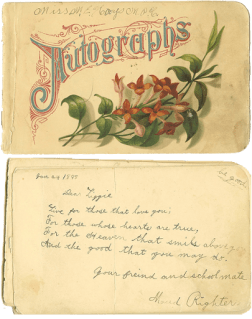 Autographs
Dear Lizzie
Live for those that love you;
For those whose hearts are true,
For the Heaven that smile above,
And the good that you may do.
Your freind and schoolmate
Maud Righter.